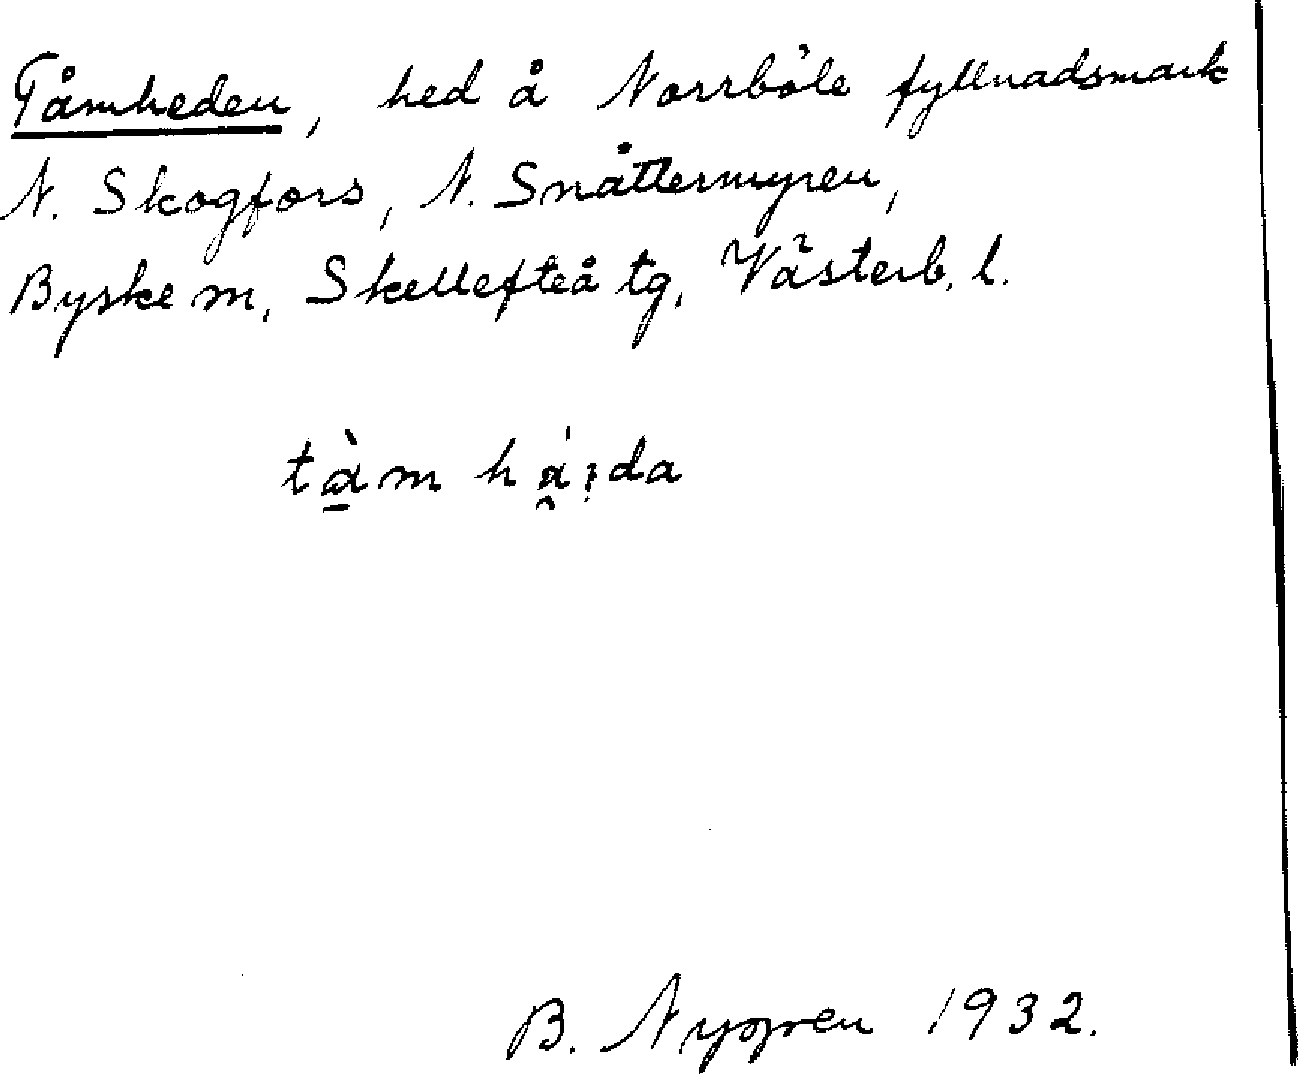 Tåmheden, hed å Norrböle fyllnadsmark
N. Skogfors, N. Snåttermyren,
Byske m, Skellefteå tg, Västerb. l.
tà̱m há̯ı̣da
B. Nygren 1932.